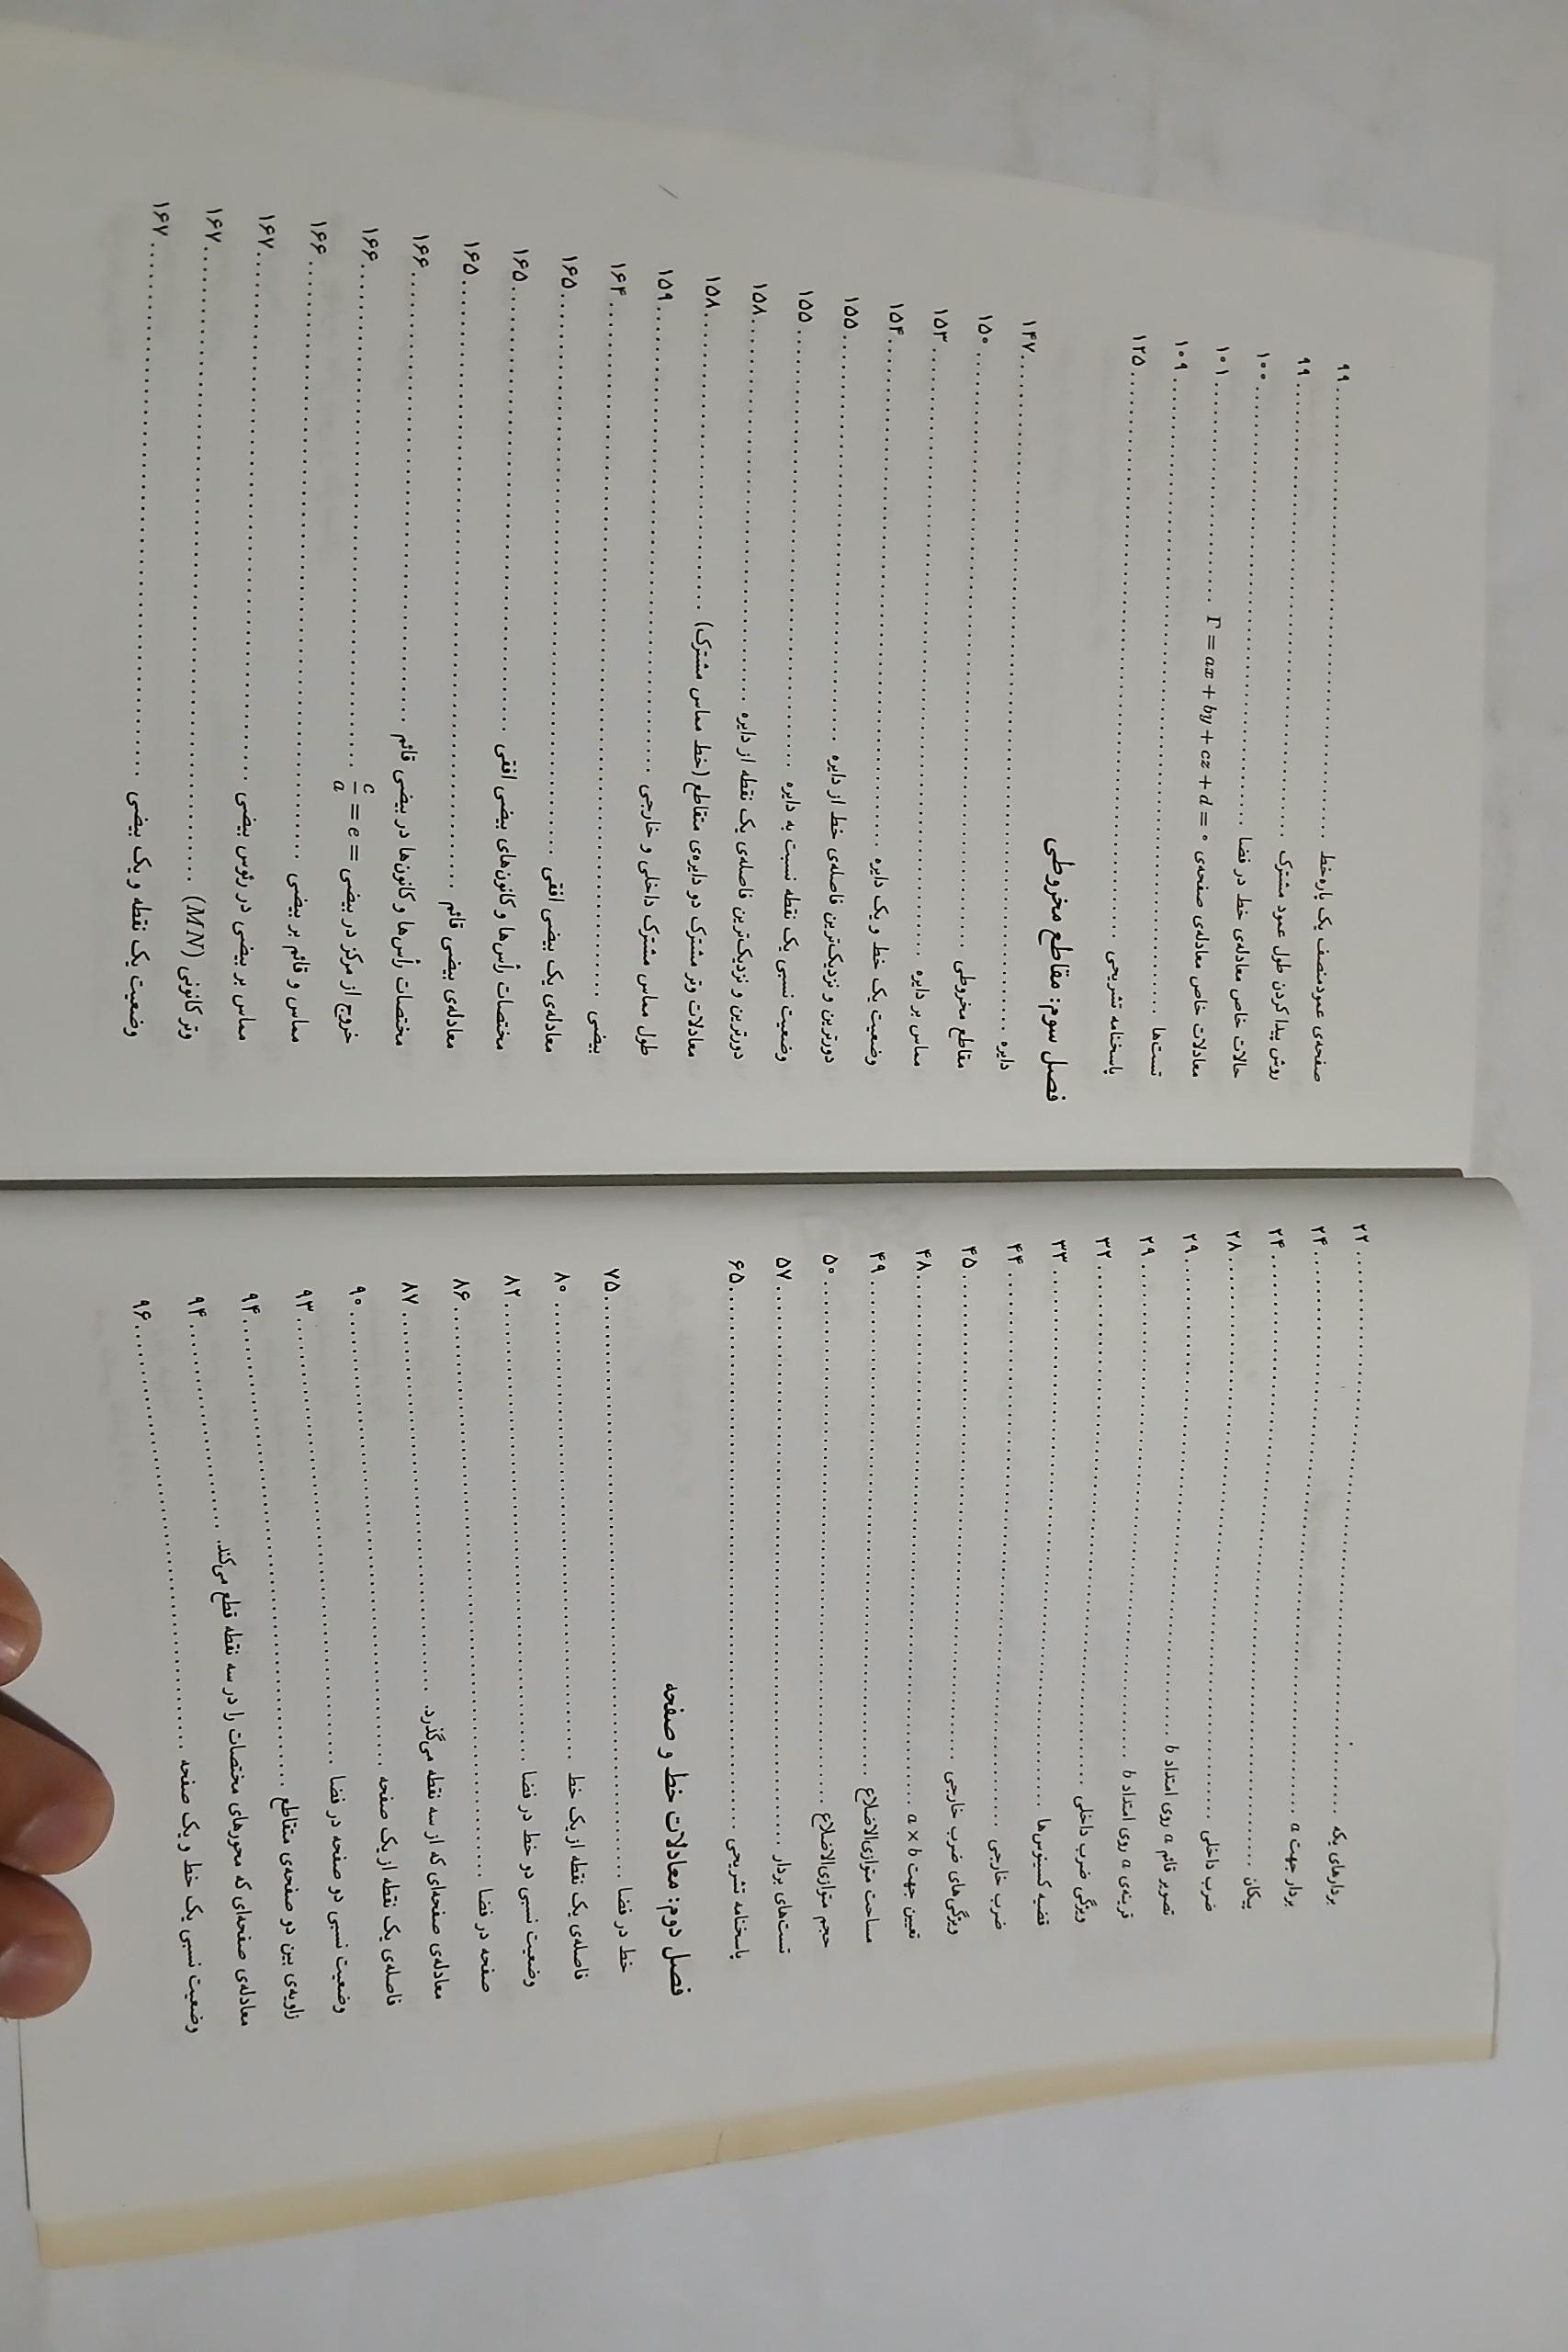 بردارهای یکه ........ ۲۲
بردار جهت a ........ ۲۴
پیکان ........ ۲۴
ضرب داخلی ........ ۲۸
تصویر قائم a روی امتداد b ........ ۲۹
قرینه‌ی a روی امتداد b ........ ۲۹
ویژگی ضرب داخلی ........ ۳۲
قضیه کسینوس‌ها ........ ۳۳
ضرب خارجی ........ ۴۴
ویژگی‌های ضرب خارجی ........ ۴۵
تعیین جهت a × b ........ ۴۸
مساحت متوازی‌الاضلاع ........ ۴۹
حجم متوازی‌الاضلاع ........ ۵۰
تست‌های بردار ........ ۵۷
پاسخنامه تشریحی ........ ۶۵
فصل دوم: معادلات خط و صفحه
خط در فضا ........ ۷۵
فاصله‌ی یک نقطه از یک خط ........ ۸۰
وضعیت نسبی دو خط در فضا ........ ۸۲
صفحه در فضا ........ ۸۶
معادله‌ی صفحه‌ای که از سه نقطه می‌گذرد. ........ ۸۷
فاصله‌ی یک نقطه از یک صفحه ........ ۹۰
وضعیت نسبی دو صفحه در فضا ........ ۹۳
زاویه‌ی بین دو صفحه‌ی متقاطع ........ ۹۴
معادله‌ی صفحه‌ای که محورهای مختصات را در سه نقطه قطع می‌کند. ........ ۹۴
وضعیت نسبی یک خط و یک صفحه ........ ۹۶
صفحه‌ی عمودمنصف یک پاره‌خط ........ ۹۹
روش پیدا کردن طول عمود مشترک ........ ۹۹
حالات خاص معادله‌ی خط در فضا ........ ۱۰۰
معادلات خاص معادله‌ی صفحه‌ی Γ = ax + by + cz + d = ۰ ........ ۱۰۱
تست‌ها ........ ۱۰۹
پاسخنامه تشریحی ........ ۱۲۵
فصل سوم: مقاطع مخروطی
دایره ........ ۱۴۷
مقاطع مخروطی ........ ۱۵۰
مماس بر دایره ........ ۱۵۳
وضعیت یک خط و یک دایره ........ ۱۵۴
دورترین و نزدیک‌ترین فاصله‌ی خط از دایره ........ ۱۵۵
وضعیت نسبی یک نقطه نسبت به دایره ........ ۱۵۵
دورترین و نزدیک‌ترین فاصله‌ی یک نقطه از دایره ........ ۱۵۸
معادلات وتر مشترک دو دایره‌ی متقاطع (خط مماس مشترک) ........ ۱۵۸
طول مماس مشترک داخلی و خارجی ........ ۱۵۹
بیضی ........ ۱۶۴
معادله‌ی یک بیضی افقی ........ ۱۶۵
مختصات رأس‌ها و کانون‌های بیضی افقی ........ ۱۶۵
معادله‌ی بیضی قائم ........ ۱۶۵
مختصات رأس‌ها و کانون‌ها در بیضی قائم ........ ۱۶۶
خروج از مرکز در بیضی = e = c/a ........ ۱۶۶
مماس و قائم بر بیضی ........ ۱۶۶
مماس بر بیضی در رئوس بیضی ........ ۱۶۷
وتر کانونی (MN) ........ ۱۶۷
وضعیت یک نقطه و یک بیضی ........ ۱۶۷